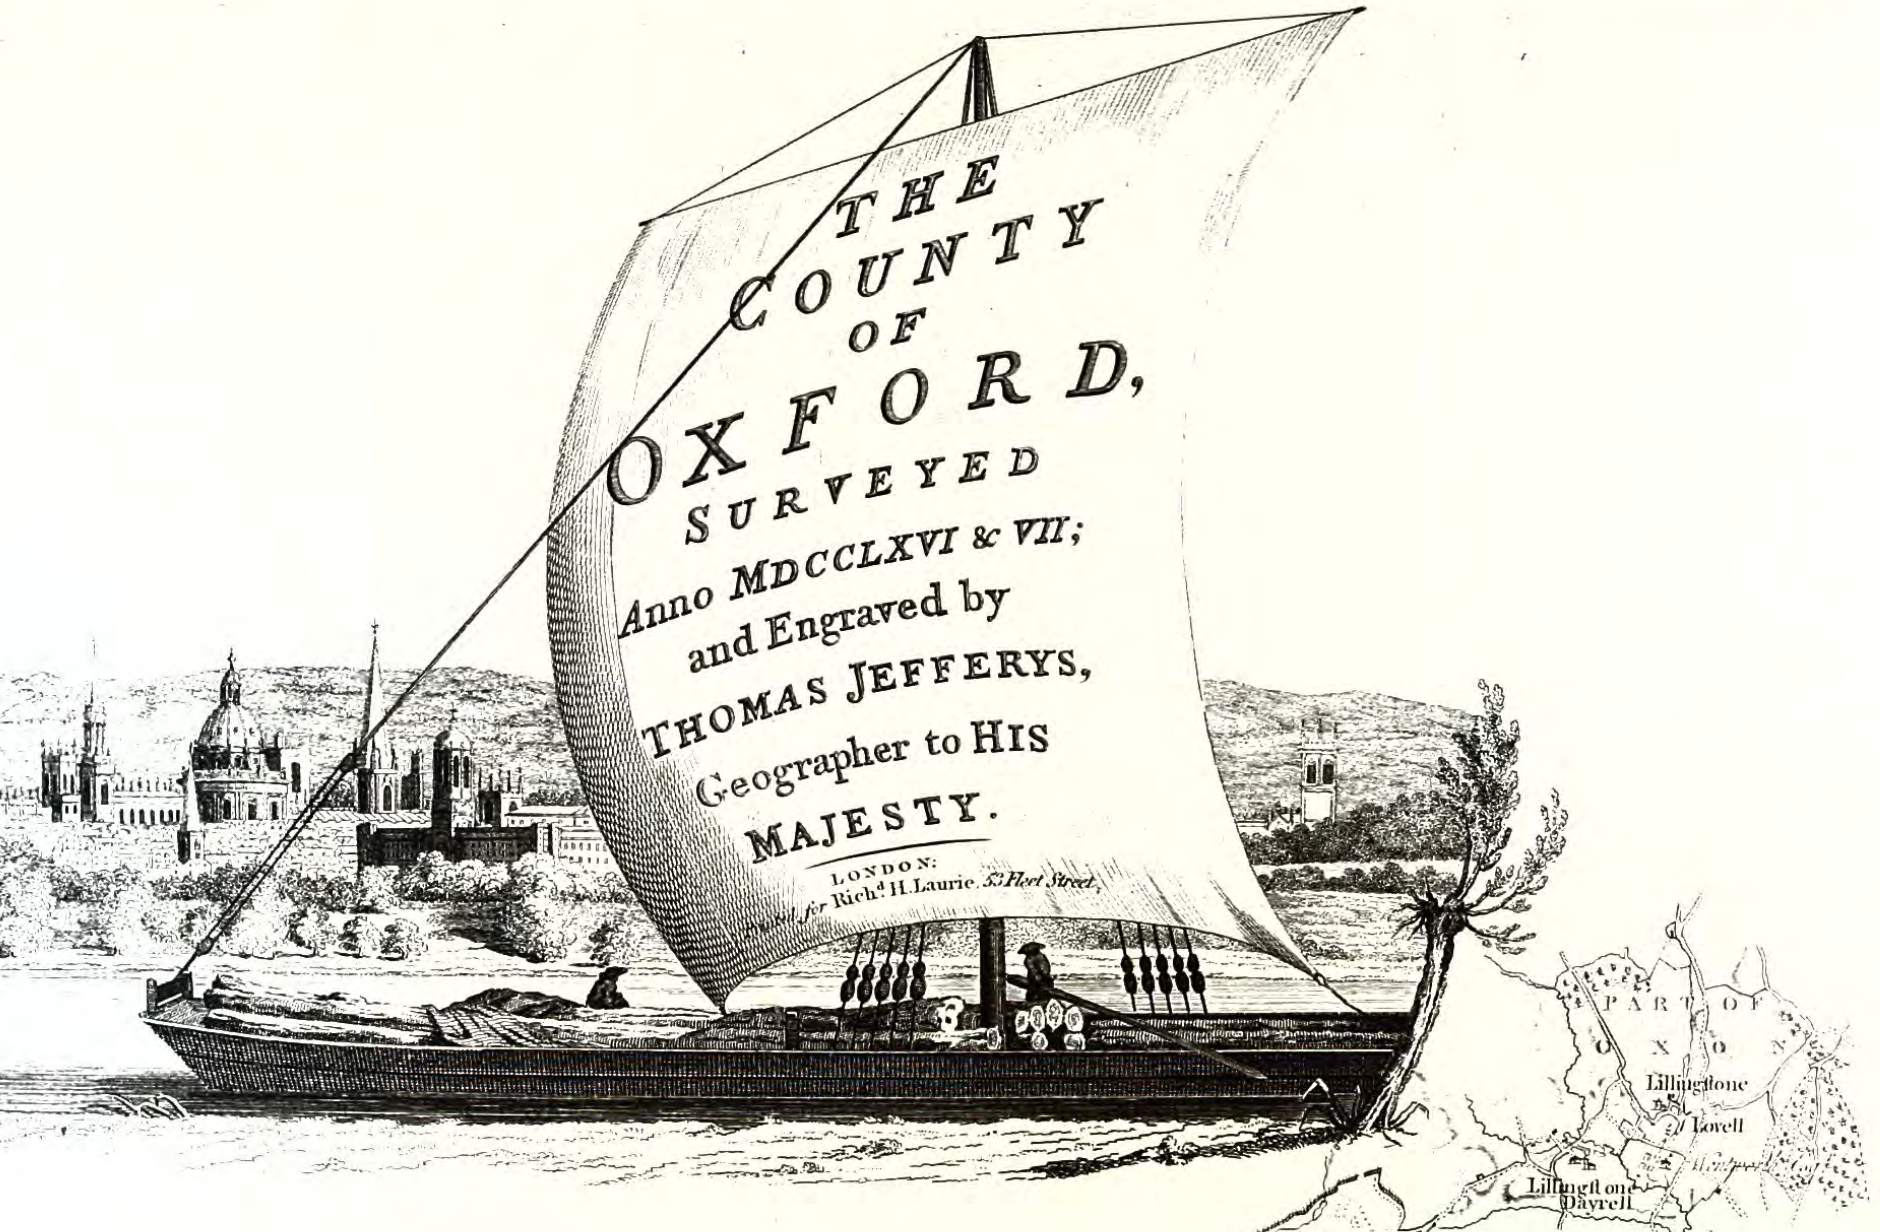 THE
COUNTY
OF
OXFORD,
SURVEYED
Anno MDCCLXVI & VII;
and Engraved by
THOMAS JEFFERYS,
Geographer to HIS
MAJESTY.
LONDON:
for Richd. H. Laurie, 53 Fleet Street,
PART OF
OXON
Lillingſtone
Lovell
Lillingſtone
Dayrell